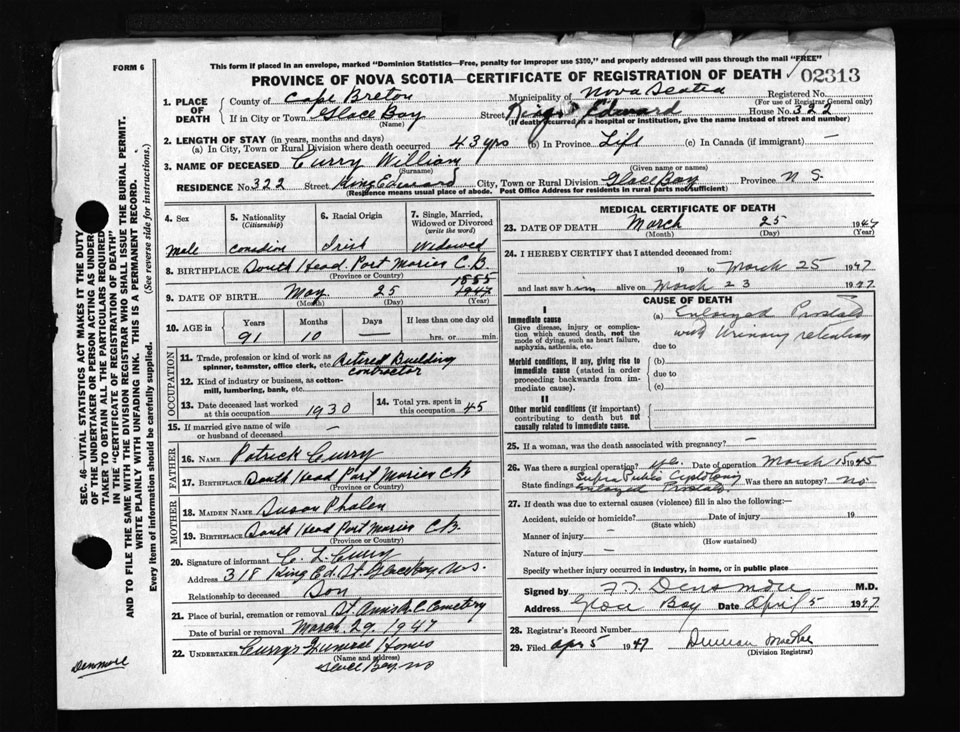 This form if placed in an envelope, marked "Dominion Statistics—Free, penalty for improper use $300," and properly addressed will pass through the mail "FREE"
FORM 6
PROVINCE OF NOVA SCOTIA—CERTIFICATE OF REGISTRATION OF DEATH
02313
1. PLACE OF DEATH
County of Cape Breton Municipality of Nova Scotia Registered No.
(For use of Registrar General only)
If in City or Town Glace Bay Street King Edward House No. 322
(Name) (If death occurred in a hospital or institution, give the name instead of street and number)
2. LENGTH OF STAY (in years, months and days)
(a) In City, Town or Rural Division where death occurred 43 yrs (b) In Province Life (c) In Canada (if immigrant) —
3. NAME OF DECEASED Curry William
(Surname) (Given name or names)
RESIDENCE No. 322 Street King Edward City, Town or Rural Division Glace Bay Province N.S.
(Residence means usual place of abode. Post Office Address for residents in rural parts not sufficient)
4. Sex
male
5. Nationality
(Citizenship)
canadian
6. Racial Origin
Irish
7. Single, Married, Widowed or Divorced
(write the word)
Widowed
8. BIRTHPLACE South Head. Port Morien C.B.
(Province or Country)
1855
9. DATE OF BIRTH May 25 1947
(Month) (Day) (Year)
10. AGE in
Years Months Days If less than one day old
91 10 — hrs. or min.
OCCUPATION
11. Trade, profession or kind of work as spinner, teamster, office clerk, etc. Retired Building contractor
12. Kind of industry or business, as cotton-mill, lumbering, bank, etc.
13. Date deceased last worked at this occupation 1930
14. Total yrs. spent in this occupation 45
15. If married give name of wife or husband of deceased —
FATHER
16. NAME Patrick Curry
17. BIRTHPLACE South Head Port Morien CB
(Province or Country)
MOTHER
18. MAIDEN NAME Susan Phalen
19. BIRTHPLACE South Head Port Morien C.B.
(Province or Country)
20. Signature of informant C. L. Curry
Address 318 King Ed. St. Glace Bay N.S.
Relationship to deceased Son
21. Place of burial, cremation or removal St Anns R.C Cemetery
Date of burial or removal March 29. 1947
22. UNDERTAKER Curry's Funeral Home
(Name and address)
Glace Bay, NS
MEDICAL CERTIFICATE OF DEATH
23. DATE OF DEATH March 25 1947
(Month) (Day) (Year)
24. I HEREBY CERTIFY that I attended deceased from:
19 to March 25 1947
and last saw him alive on March 23 1947
CAUSE OF DEATH
I
Immediate cause
Give disease, injury or complication which caused death, not the mode of dying, such as heart failure, asphyxia, asthenia, etc.
(a) Enlarged Prostate
with Urinary retention
due to
Morbid conditions, if any, giving rise to immediate cause (stated in order proceeding backwards from immediate cause).
(b)
due to
(c)
II
Other morbid conditions (if important) contributing to death but not causally related to immediate cause.
25. If a woman, was the death associated with pregnancy? —
26. Was there a surgical operation? yes Date of operation March 15 1945
State findings Supra Pubic Cystotomy Was there an autopsy? no
Enlarged Prostate
27. If death was due to external causes (violence) fill in also the following:—
Accident, suicide or homicide? Date of injury 19
(State which)
Manner of injury —
(How sustained)
Nature of injury —
Specify whether injury occurred in industry, in home, or in public place
Signed by F. T. Densmore M.D.
Address Glace Bay Date April 5 1947.
28. Registrar's Record Number
29. Filed Apr 5 1947 Duncan MacRae
(Division Registrar)
SEC. 46—VITAL STATISTICS ACT MAKES IT THE DUTY
OF THE UNDERTAKER OR PERSON ACTING AS UNDERTAKER
TO OBTAIN ALL THE PARTICULARS REQUIRED
IN THE "CERTIFICATE OF REGISTRATION OF DEATH"
AND TO FILE THE SAME WITH THE DIVISION REGISTRAR WHO SHALL ISSUE THE BURIAL PERMIT.
WRITE PLAINLY WITH UNFADING INK. THIS IS A PERMANENT RECORD.
Every item of information should be carefully supplied. (See reverse side for instructions.)
Denmore